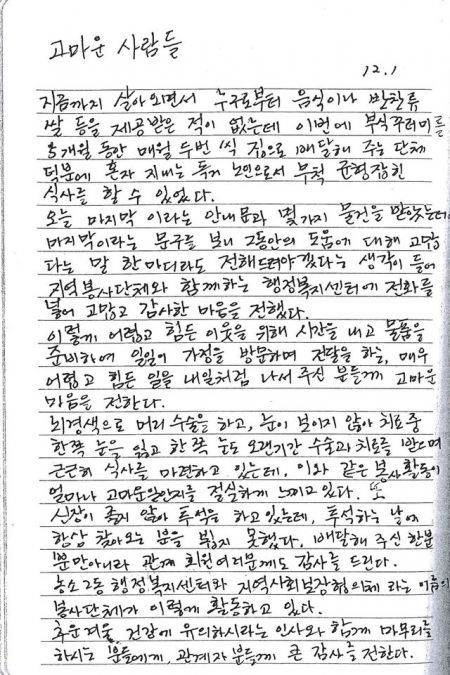 고마운 사람들
12.1
지금까지 살아오면서 누구로부터 음식이나 반찬류
쌀 등을 제공받은 적이 없는데 이번에 부식꾸러미를
5개월 동안 매월 두번 씩 집으로 배달해 주는 단체
덕분에 혼자 지내는 독거 노인으로서 무척 균형잡힌
식사를 할 수 있었다.
오늘 마지막 이라는 안내문과 몇가지 물건을 받았는데
마지막이라는 문구를 보니 그동안의 도움에 대해 고맙
다는 말 한마디라도 전해드려야겠다는 생각이 들어
지역봉사단체와 함께하는 행정복지센터에 전화를
넣어 고맙고 감사한 마음을 전했다.
이렇게 어렵고 힘든 이웃을 위해 시간을 내고 물품을
준비하여 일일이 가정을 방문하며 전달을 하는, 매우
어렵고 힘든 일을 내일처럼 나서 주신 분들께 고마운
마음을 전한다.
뇌경색으로 머리 수술을 하고, 눈이 보이지 않아 치료중
한쪽 눈을 잃고 한쪽 눈도 오랜기간 수술과 치료를 받으며
근근히 식사를 마련하고 있는데, 이와 같은 봉사활동이
얼마나 고마운일인지를 절실하게 느끼고 있다. 또
신장이 좋지 않아 투석을 하고 있는데, 투석하는 날에
항상 찾아오는 분을 뵙지 못했다. 배달해 주신 한분
뿐만아니라 관계 회원여러분께도 감사를 드린다.
농소2동 행정복지센터와 지역사회보장협의체 라는 이름의
봉사단체가 이렇게 활동하고 있다.
추운겨울, 건강에 유의하시라는 인사와 함께 마무리를
하시는 분들에게, 관계자 분들께 큰 감사를 전한다.